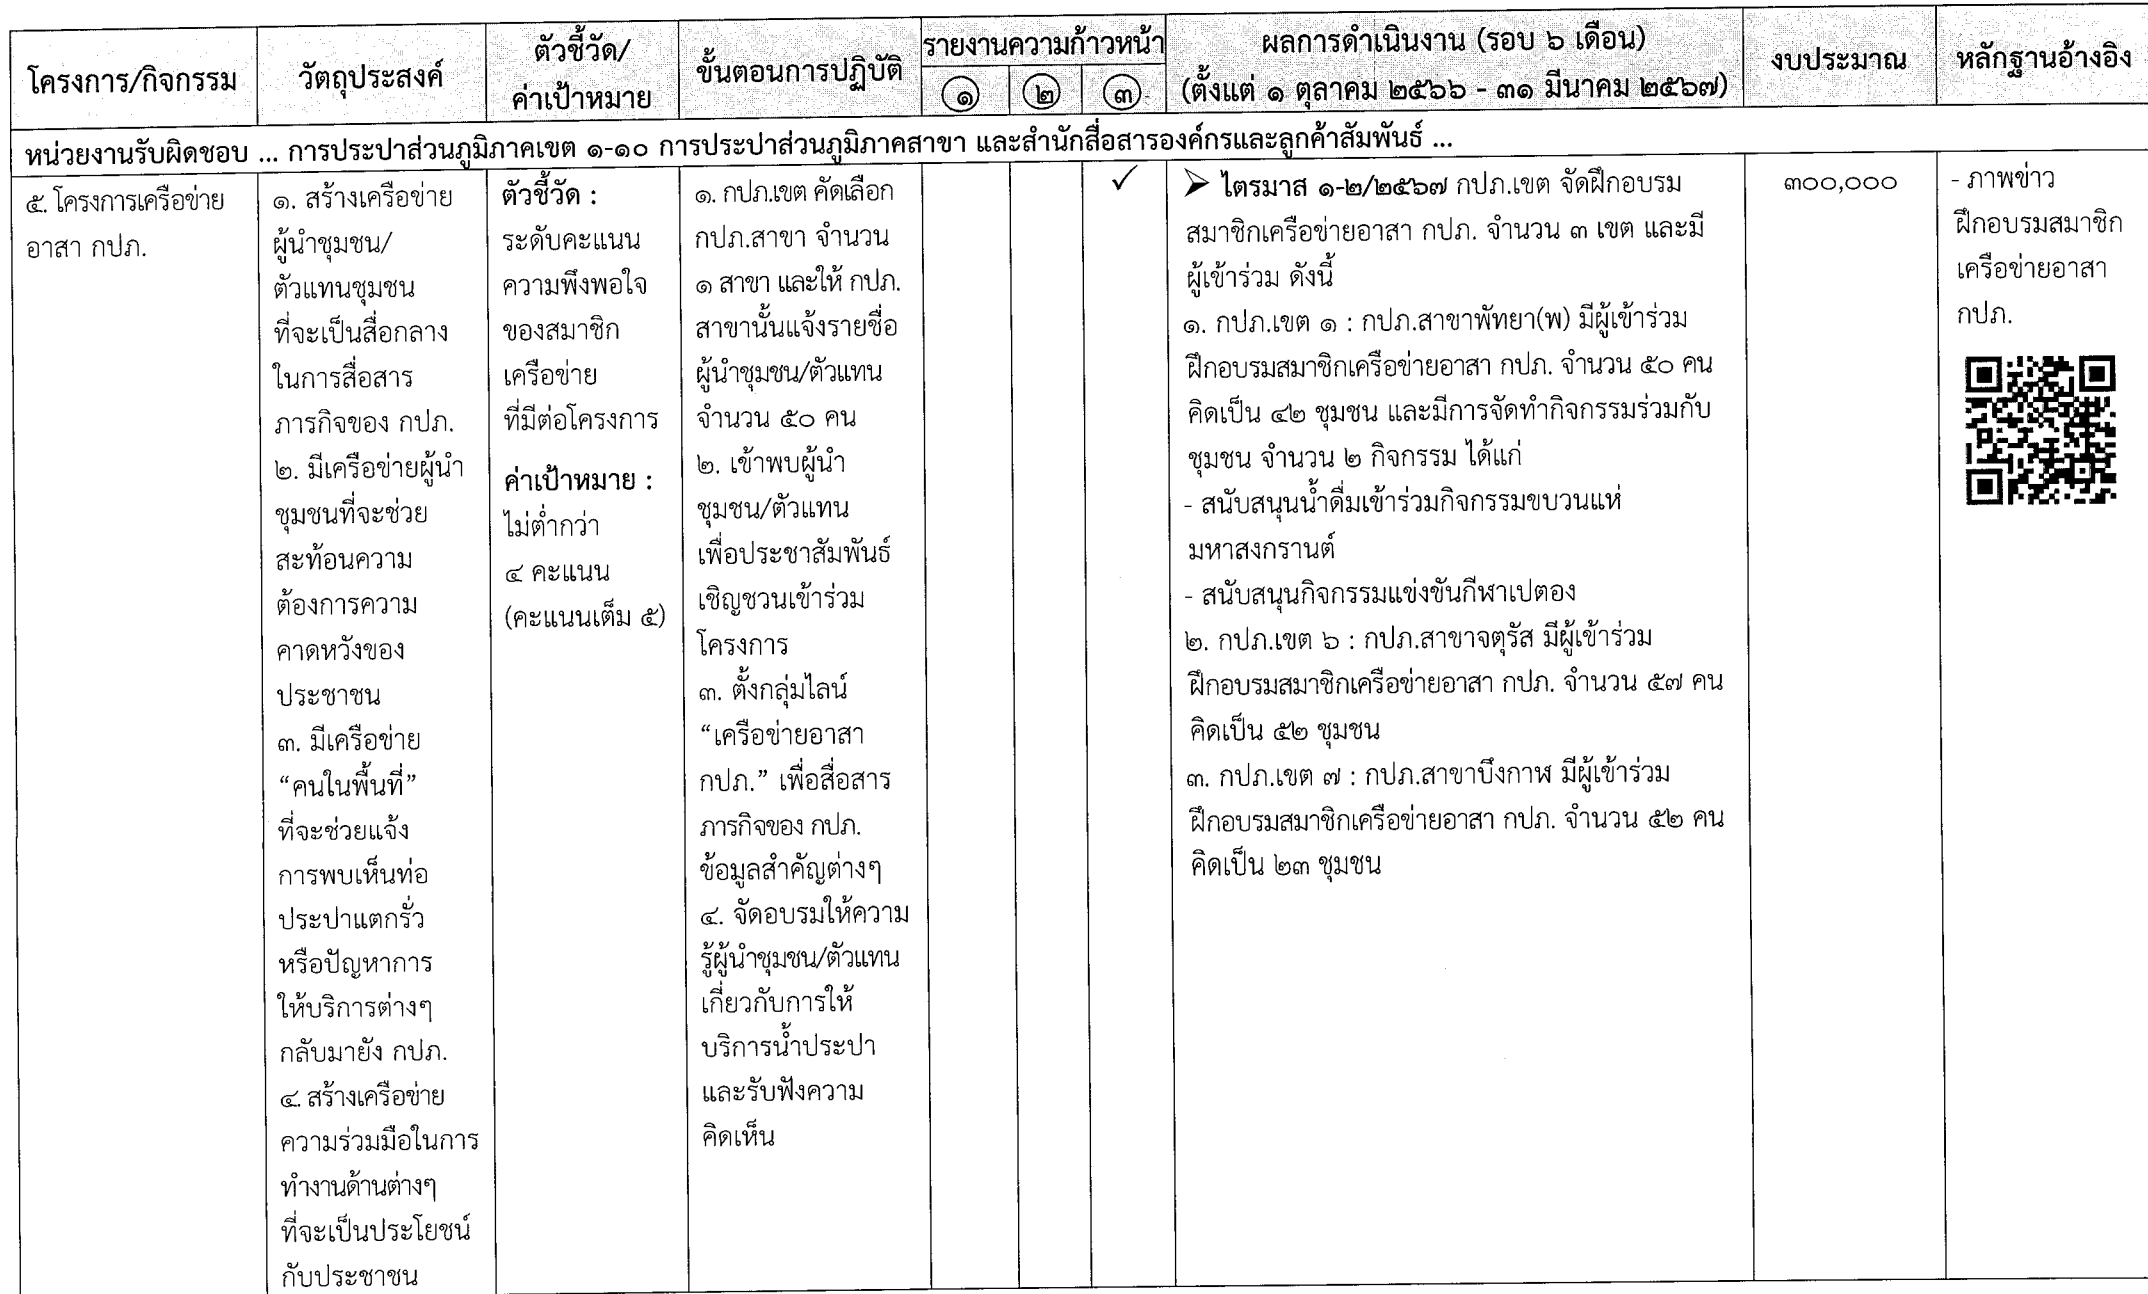 โครงการ/กิจกรรม
วัตถุประสงค์
ตัวชี้วัด/
ค่าเป้าหมาย
ขั้นตอนการปฏิบัติ
รายงานความก้าวหน้า
๑ ๒ ๓
ผลการดำเนินงาน (รอบ ๖ เดือน)
(ตั้งแต่ ๑ ตุลาคม ๒๕๖๖ - ๓๑ มีนาคม ๒๕๖๗)
งบประมาณ
หลักฐานอ้างอิง
หน่วยงานรับผิดชอบ ... การประปาส่วนภูมิภาคเขต ๑-๑๐ การประปาส่วนภูมิภาคสาขา และสำนักสื่อสารองค์กรและลูกค้าสัมพันธ์ ...
๕. โครงการเครือข่าย
อาสา กปภ.
๑. สร้างเครือข่าย
ผู้นำชุมชน/
ตัวแทนชุมชน
ที่จะเป็นสื่อกลาง
ในการสื่อสาร
ภารกิจของ กปภ.
๒. มีเครือข่ายผู้นำ
ชุมชนที่จะช่วย
สะท้อนความ
ต้องการความ
คาดหวังของ
ประชาชน
๓. มีเครือข่าย
“คนในพื้นที่”
ที่จะช่วยแจ้ง
การพบเห็นท่อ
ประปาแตกรั่ว
หรือปัญหาการ
ให้บริการต่างๆ
กลับมายัง กปภ.
๔. สร้างเครือข่าย
ความร่วมมือในการ
ทำงานด้านต่างๆ
ที่จะเป็นประโยชน์
กับประชาชน
ตัวชี้วัด :
ระดับคะแนน
ความพึงพอใจ
ของสมาชิก
เครือข่าย
ที่มีต่อโครงการ
ค่าเป้าหมาย :
ไม่ต่ำกว่า
๔ คะแนน
(คะแนนเต็ม ๕)
๑. กปภ.เขต คัดเลือก
กปภ.สาขา จำนวน
๑ สาขา และให้ กปภ.
สาขานั้นแจ้งรายชื่อ
ผู้นำชุมชน/ตัวแทน
จำนวน ๕๐ คน
๒. เข้าพบผู้นำ
ชุมชน/ตัวแทน
เพื่อประชาสัมพันธ์
เชิญชวนเข้าร่วม
โครงการ
๓. ตั้งกลุ่มไลน์
“เครือข่ายอาสา
กปภ.” เพื่อสื่อสาร
ภารกิจของ กปภ.
ข้อมูลสำคัญต่างๆ
๔. จัดอบรมให้ความ
รู้ผู้นำชุมชน/ตัวแทน
เกี่ยวกับการให้
บริการน้ำประปา
และรับฟังความ
คิดเห็น
✓
➢ ไตรมาส ๑-๒/๒๕๖๗ กปภ.เขต จัดฝึกอบรม
สมาชิกเครือข่ายอาสา กปภ. จำนวน ๓ เขต และมี
ผู้เข้าร่วม ดังนี้
๑. กปภ.เขต ๑ : กปภ.สาขาพัทยา(พ) มีผู้เข้าร่วม
ฝึกอบรมสมาชิกเครือข่ายอาสา กปภ. จำนวน ๕๐ คน
คิดเป็น ๔๒ ชุมชน และมีการจัดทำกิจกรรมร่วมกับ
ชุมชน จำนวน ๒ กิจกรรม ได้แก่
- สนับสนุนน้ำดื่มเข้าร่วมกิจกรรมขบวนแห่
มหาสงกรานต์
- สนับสนุนกิจกรรมแข่งขันกีฬาเปตอง
๒. กปภ.เขต ๖ : กปภ.สาขาจตุรัส มีผู้เข้าร่วม
ฝึกอบรมสมาชิกเครือข่ายอาสา กปภ. จำนวน ๕๗ คน
คิดเป็น ๕๒ ชุมชน
๓. กปภ.เขต ๗ : กปภ.สาขาบึงกาฬ มีผู้เข้าร่วม
ฝึกอบรมสมาชิกเครือข่ายอาสา กปภ. จำนวน ๕๒ คน
คิดเป็น ๒๓ ชุมชน
๓๐๐,๐๐๐
- ภาพข่าว
ฝึกอบรมสมาชิก
เครือข่ายอาสา
กปภ.